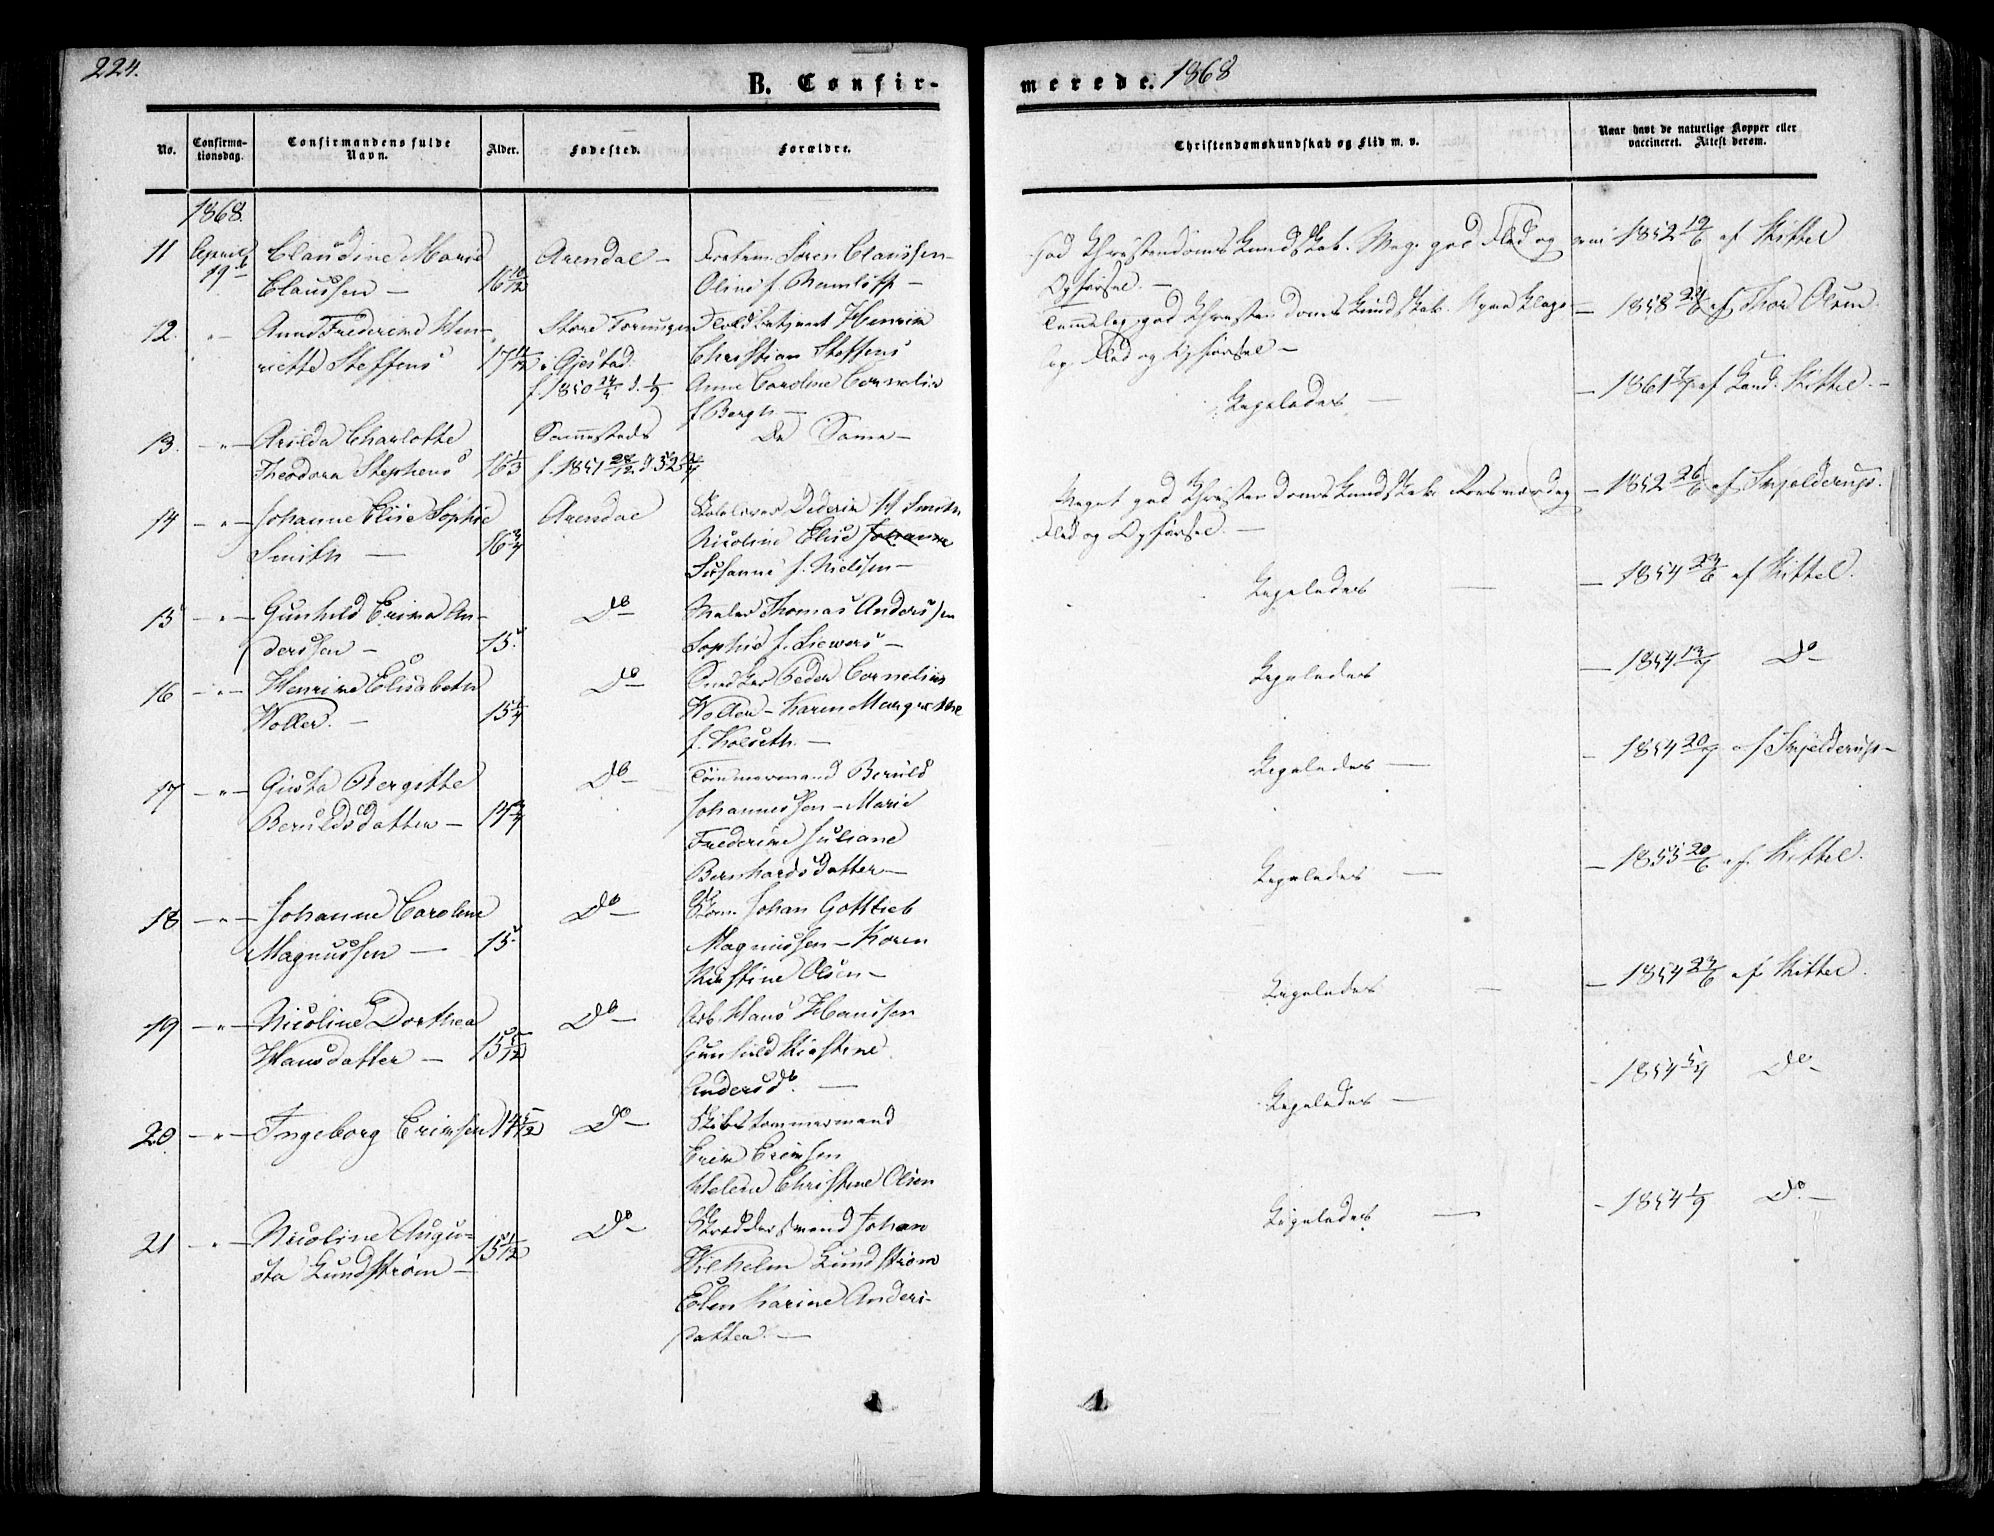 224.
B. Confir-
merede. 1868
No.
Confirma-
tionsdag.
Confirmandens fulde
Navn.
Alder.
Fødested.
Forældre.
Christendomskundskab og Flid m. v.
Naar havt de naturlige Kopper eller
vaccineret. Attest derom.
1868.
11 April 19de Claudine Marie
Claussen — 16 10/12
Arendal —
Søren Claussen —
Oline f.
God Christendoms Kundskab. Meg. god Flid og
Opførsel. —
1852 19/6 af Kittel
12. — " — Anne Frederikke Hen-
riette Steffens 17 11/12
Store Torungen
i Øjestad.
f. 1850
Henrik
Christian Steffens
Anne Caroline Cornelia
f. Bergh —
Temmelig god Christendoms Kundskab.
Flid og Opførsel —
— 1858 24/8 af Thor Olsen.
13. — " — Arilda Charlotte
Theodora Stephens 16 1/3
Sammesteds
f. 1851 28/12
De Samme —
Ligeledes —
— 1861 af Cand. Kittel. —
14 — " — Johanne Elise Sophie
Smith — 16 3/4
Arendal
Diderik Smith
Nicoline Elise Johanne
Susanne f. Nielsen —
Meget god Christendoms Kundskab. Roesværdig
Flid og Opførsel. —
— 1852 26/6 af Skjelderup.
15 — " — Gunhild Erika An-
derssen — 15.
Do —
Maler Thomas Anderssen
Sophie f. Siewers —
Ligeledes —
— 1854 23/6 af Kittel.
16 — " — Henrikke Elisabeth
Woller. — 15 1/4
Do —
Peder Cornelius
Woller — Karen Margrethe
f. Holseth. —
Ligeledes
— 1854 13/7 Do —
17 — " — Gusta Bergitte
Beruldsdatter — 14 3/4
Do —
Tømmermand Beruld
Johannessen — Marie
Frederikke Juliane
Bernhardsdatter —
Ligeledes —
— 1854 20/7 af Skjelderup —
18 — " — Johanne Caroline
Magnussen — 15.
Do —
Skom. Johan Gottlieb
Magnussen — Karen
Kirstine Olsen —
Ligeledes —
— 1855 20/6 af Kittel.
19 — " — Nicoline Dorthea
Hansdatter — 15 5/12
Do —
Arb. Hans Hanssen
Gunhild Kirstine
Andersdr. —
Ligeledes —
— 1854 23/6 af Kittel.
20. — " — Ingeborg Eriksen 14 5/12
Do —
Skibstømmermand
Erik Eriksen
Helene Christine Olsen
Ligeledes —
— 1854 5/9 Do —
21 — " — Nicoline Augu-
sta Lundstrøm — 15 1/12
Do —
Skreddersvend Johan
Wilhelm Lundstrøm
Elen Karine Anders-
datter. —
Ligeledes —
— 1854 1/9 Do —